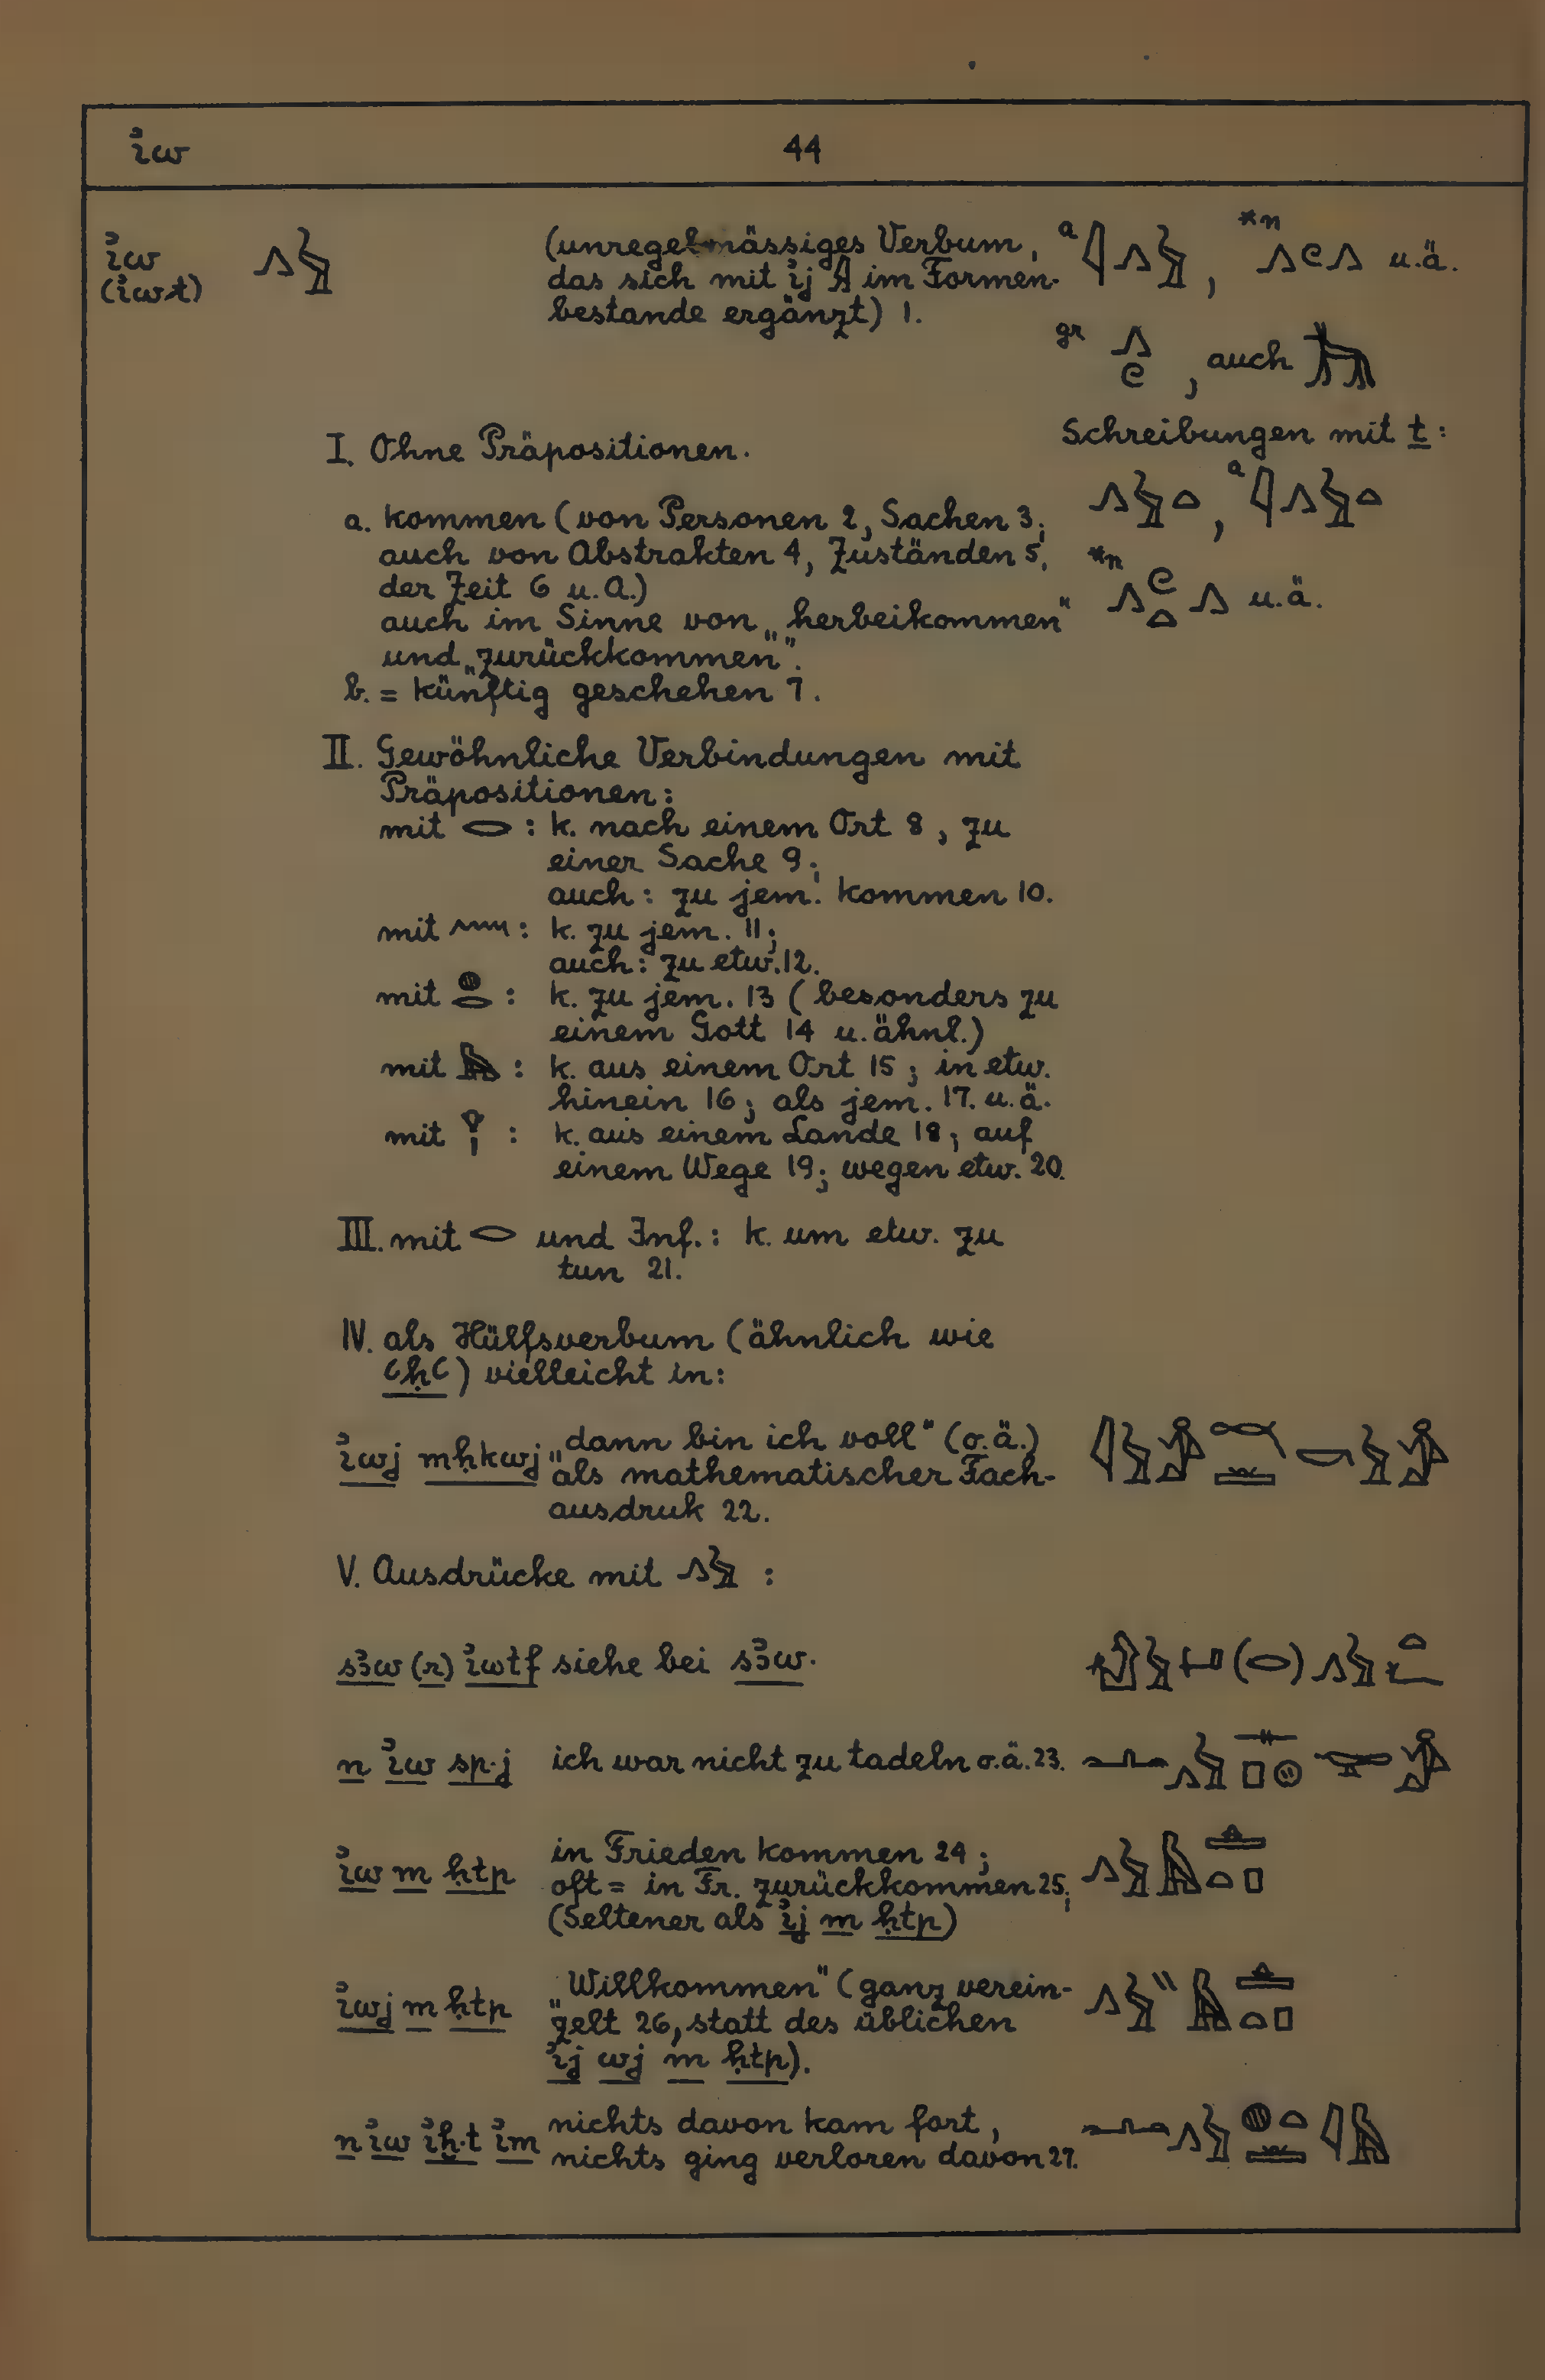 ı͗w 44
ı͗w (unregelmässiges Verbum, a 𓇋𓂻𓅱, *n 𓂻𓏲𓂻 u.ä.
(ı͗wt) 𓂻𓅱 das sich mit ı͗j 𓇍 im Formen-
bestande ergänzt) 1.
gr 𓂻𓏲, auch
I. Ohne Präpositionen. Schreibungen mit t:
a. kommen (von Personen 2, Sachen 3; 𓂻𓅱𓏏, a 𓇋𓂻𓅱𓏏
auch von Abstrakten 4, Zuständen 5,
der Zeit 6 u. A.) *n 𓂻𓏲𓏏𓂻 u.ä.
auch im Sinne von „herbeikommen"
und „zurückkommen".
b. = künftig geschehen 7.
II. Gewöhnliche Verbindungen mit
Präpositionen:
mit 𓂋 : k. nach einem Ort 8, zu
einer Sache 9;
auch: zu jem. kommen 10.
mit 𓈖 : k. zu jem. 11;
auch: zu etw. 12.
mit 𓐍𓂋 : k. zu jem. 13 (besonders zu
einem Gott 14 u. ähnl.)
mit 𓅓 : k. aus einem Ort 15; in etw.
hinein 16; als jem. 17. u. ä.
mit 𓁷𓏤 : k. aus einem Lande 18; auf
einem Wege 19; wegen etw. 20.
III. mit 𓂋 und Inf.: k. um etw. zu
tun 21.
IV. als Hülfsverbum (ähnlich wie
ꜥḥꜥ) vielleicht in:
ı͗wj mḥkwj „dann bin ich voll" (o.ä.)
als mathematischer Fach-
ausdruk 22.
V. Ausdrücke mit 𓂻𓅱 :
sꜣw (r) ı͗wtf siehe bei sꜣw.
n ı͗w sp·j ich war nicht zu tadeln o.ä. 23.
ı͗w m ḥtp in Frieden kommen 24; 𓂻𓅱𓅓𓊵𓏏𓊪
oft = in Fr. zurückkommen 25;
(Seltener als ı͗j m ḥtp)
ı͗wj m ḥtp „Willkommen" (ganz verein- 𓂻𓅱𓏭𓅓𓊵𓏏𓊪
zelt 26, statt des üblichen
ı͗j wj m ḥtp).
n ı͗w ı͗ḫ·t ı͗m nichts davon kam fort, 𓂜𓂻𓅱𓐍𓏏𓏛𓇋𓅓
nichts ging verloren davon 27.